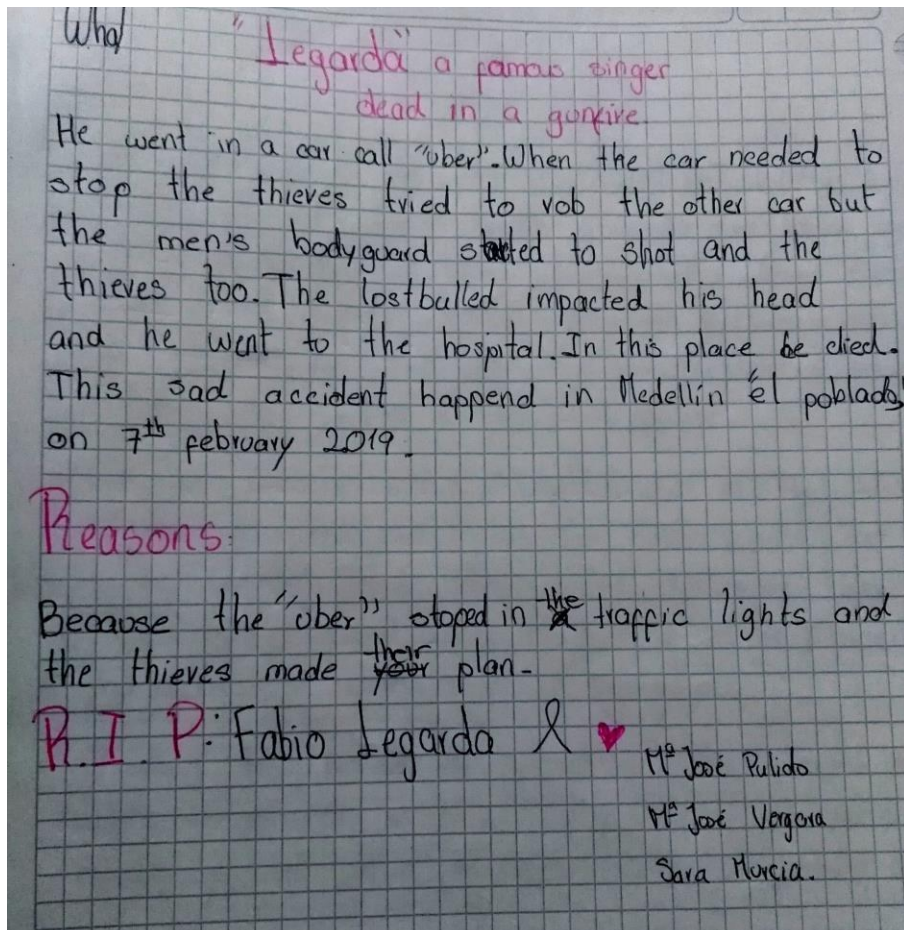 What
"Legarda" a famous singer
dead in a gunfire.
He went in a car call "uber". When the car needed to
stop the thieves tried to rob the other car but
the men's bodyguard started to shot and the
thieves too. The lostbulled impacted his head
and he went to the hospital. In this place he died.
This sad accident happend in Medellín "el poblado"
on 7th february 2019.
Reasons:
Because the "uber" stoped in the traffic lights and
the thieves made their plan.
R.I.P: Fabio Legarda
Mª José Pulido
Mª José Vergara
Sara Murcia.